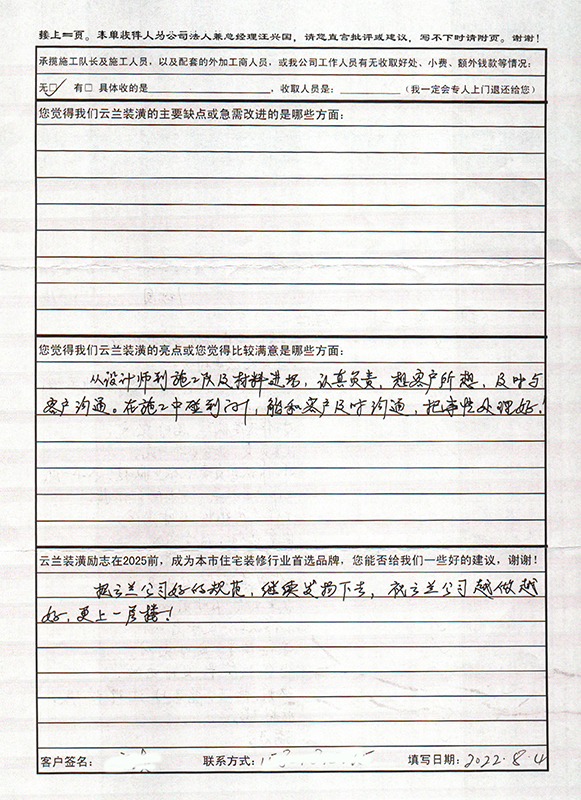 接上一页。本单收件人为公司法人兼总经理汪兴国,请您直言批评或建议,写不下时请附页。谢谢!
承揽施工队长及施工人员,以及配套的外加工商人员,或我公司工作人员有无收取好处、小费、额外钱款等情况:
无□✓ 有□ 具体收的是____,收取人员是:____(我一定会专人上门退还给您)
您觉得我们云兰装潢的主要缺点或急需改进的是哪些方面:
您觉得我们云兰装潢的亮点或您觉得比较满意是哪些方面:
从设计师到施工队及材料进场,认真负责,想客户所想,及时与
客户沟通。在施工中碰到问,能和客户及时沟通,把事情处理好!
云兰装潢励志在2025前,成为本市住宅装修行业首选品牌,您能否给我们一些好的建议,谢谢!
把云兰公司好的规范,继续发扬下去,祝云兰公司越做越
好,更上一层楼!
客户签名: 联系方式: 填写日期:2022.8.4